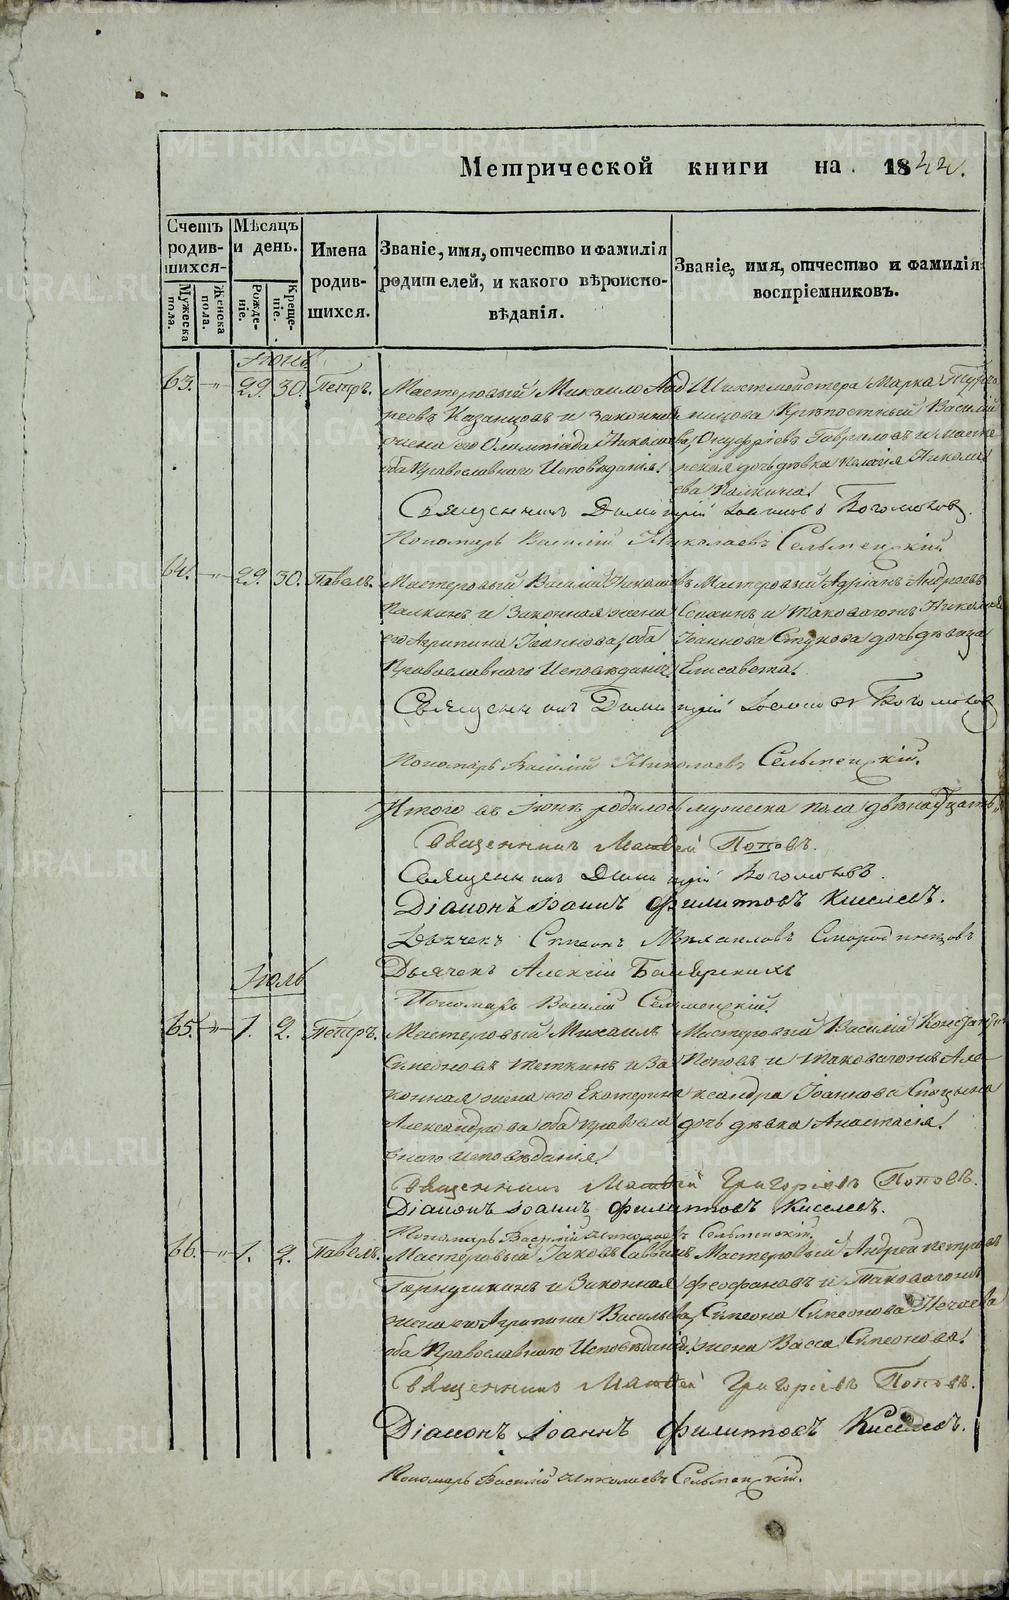 Метрической книги на 1844.
Счетъ родив-шихся.
Мужеска пола.
Женска пола.
Мѣсяцъ и день.
Рожде-ніе.
Креще-ніе.
Имена родив-шихся.
Званіе, имя, отчество и фамилія родителей, и какого вѣроиспо-вѣданія.
Званіе, имя, отчество и фамилія воспріемниковъ.
Іюнь
63. 29. 30. Петръ.
Мастеровый Михаило Анд
реевъ Казанцовъ и законная
жена его Олимпіада Николаева,
оба Православнаго Исповѣданія.
Шихтмейстера Марка
Крѣпостный Василій
Онуфріевъ Гавриловъ и масте
дочь дѣвка Пелагія Никола
ева Палкина.
Священникъ Димитрій Іоанновъ Богомоловъ.
Пономарь Василій Николаевъ Сельменскій.
64. 29. 30. Павелъ.
Мастеровый Василій Николаевъ
Палкинъ и Законная жена
его Агрипина Іванова, оба
Православнаго Исповѣданія.
Мастеровый Адріанъ Андреевъ
и таковагожъ Николая
Іоаннова Стукова дочь дѣвица
Елисавета.
Священникъ Димитрій Іоанновъ Богомоловъ
Пономарь Василій Николаевъ Сельменскій.
Итого въ Іюнѣ родилось мужеска пола двѣнадцать
Священникъ Матвей Поповъ.
Священникъ Димитрій Богомоловъ.
Діаконъ Іоаннъ Филиповъ Киселевъ.
Дьячекъ Симеонъ Михаиловъ Смородинцовъ
Дьячекъ Алексій
Пономарь Василій Сельменскій.
Іюль
65. 1. 2. Петръ.
Мастеровый Михаилъ
Симеоновъ Теткинъ и За
конная жена его Екатерина
Александрова оба правосла
внаго исповѣданія.
Мастеровый Василій Констан
Поповъ и таковагожъ Але
ксандра Іоаннова
дочь дѣвка Анастасія.
Священникъ Матвей Григоріевъ Поповъ.
Діаконъ Іоаннъ Филиповъ Киселевъ.
Пономарь Василій Николаевъ Сельменскій.
66. 1. 2. Павелъ.
Мастеровый Іаковъ Саввинъ
и Законная
жена его Агрипина Васильева,
оба Православнаго Исповѣданія.
Мастеровый Андрей Петровъ
Феофановъ и Таковагожъ
Симеона Симеонова Нечаева
жена Васса Симеонова.
Священникъ Матвей Григоріевъ Поповъ.
Діаконъ Іоаннъ Филиповъ Киселевъ.
Пономарь Василій Николаевъ Сельменскій.
METRIKI.GASO-URAL.RU